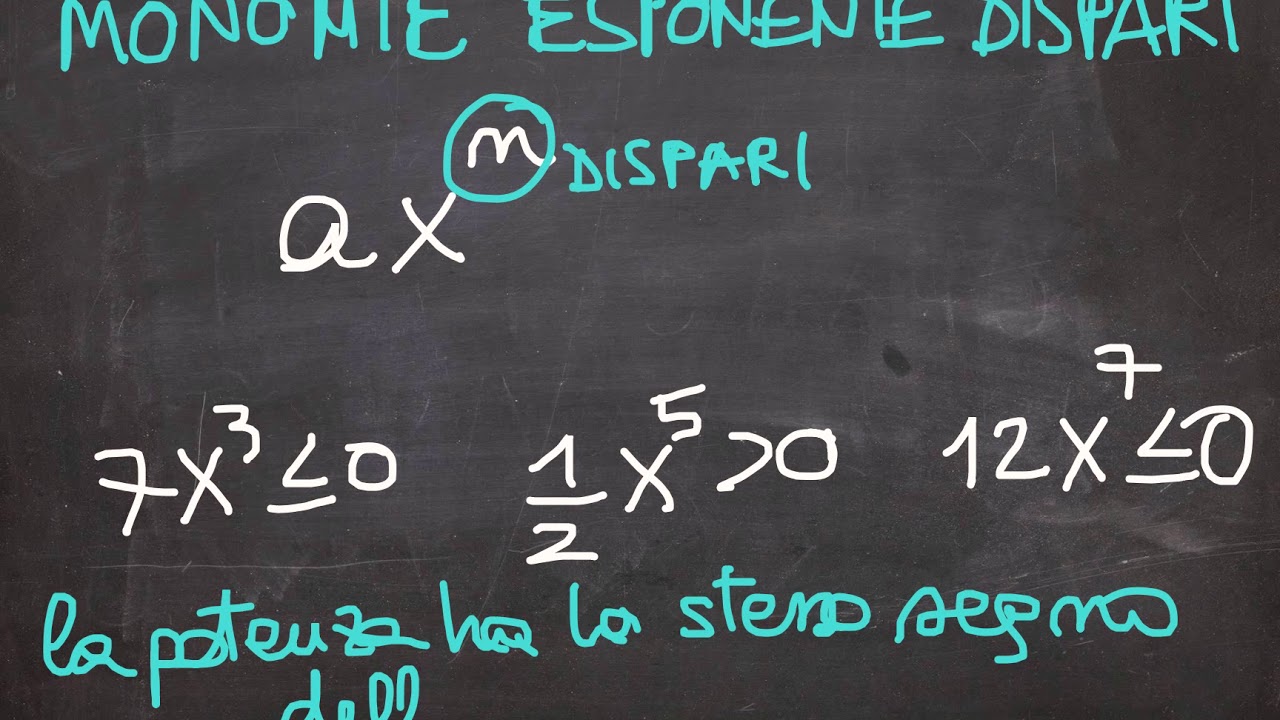 MONOMIE ESPONENTE DISPARI
ax^m DISPARI
7x³≤0 1/2x⁵>0 12x⁷≤0
la potenza ha lo stesso segno
dell